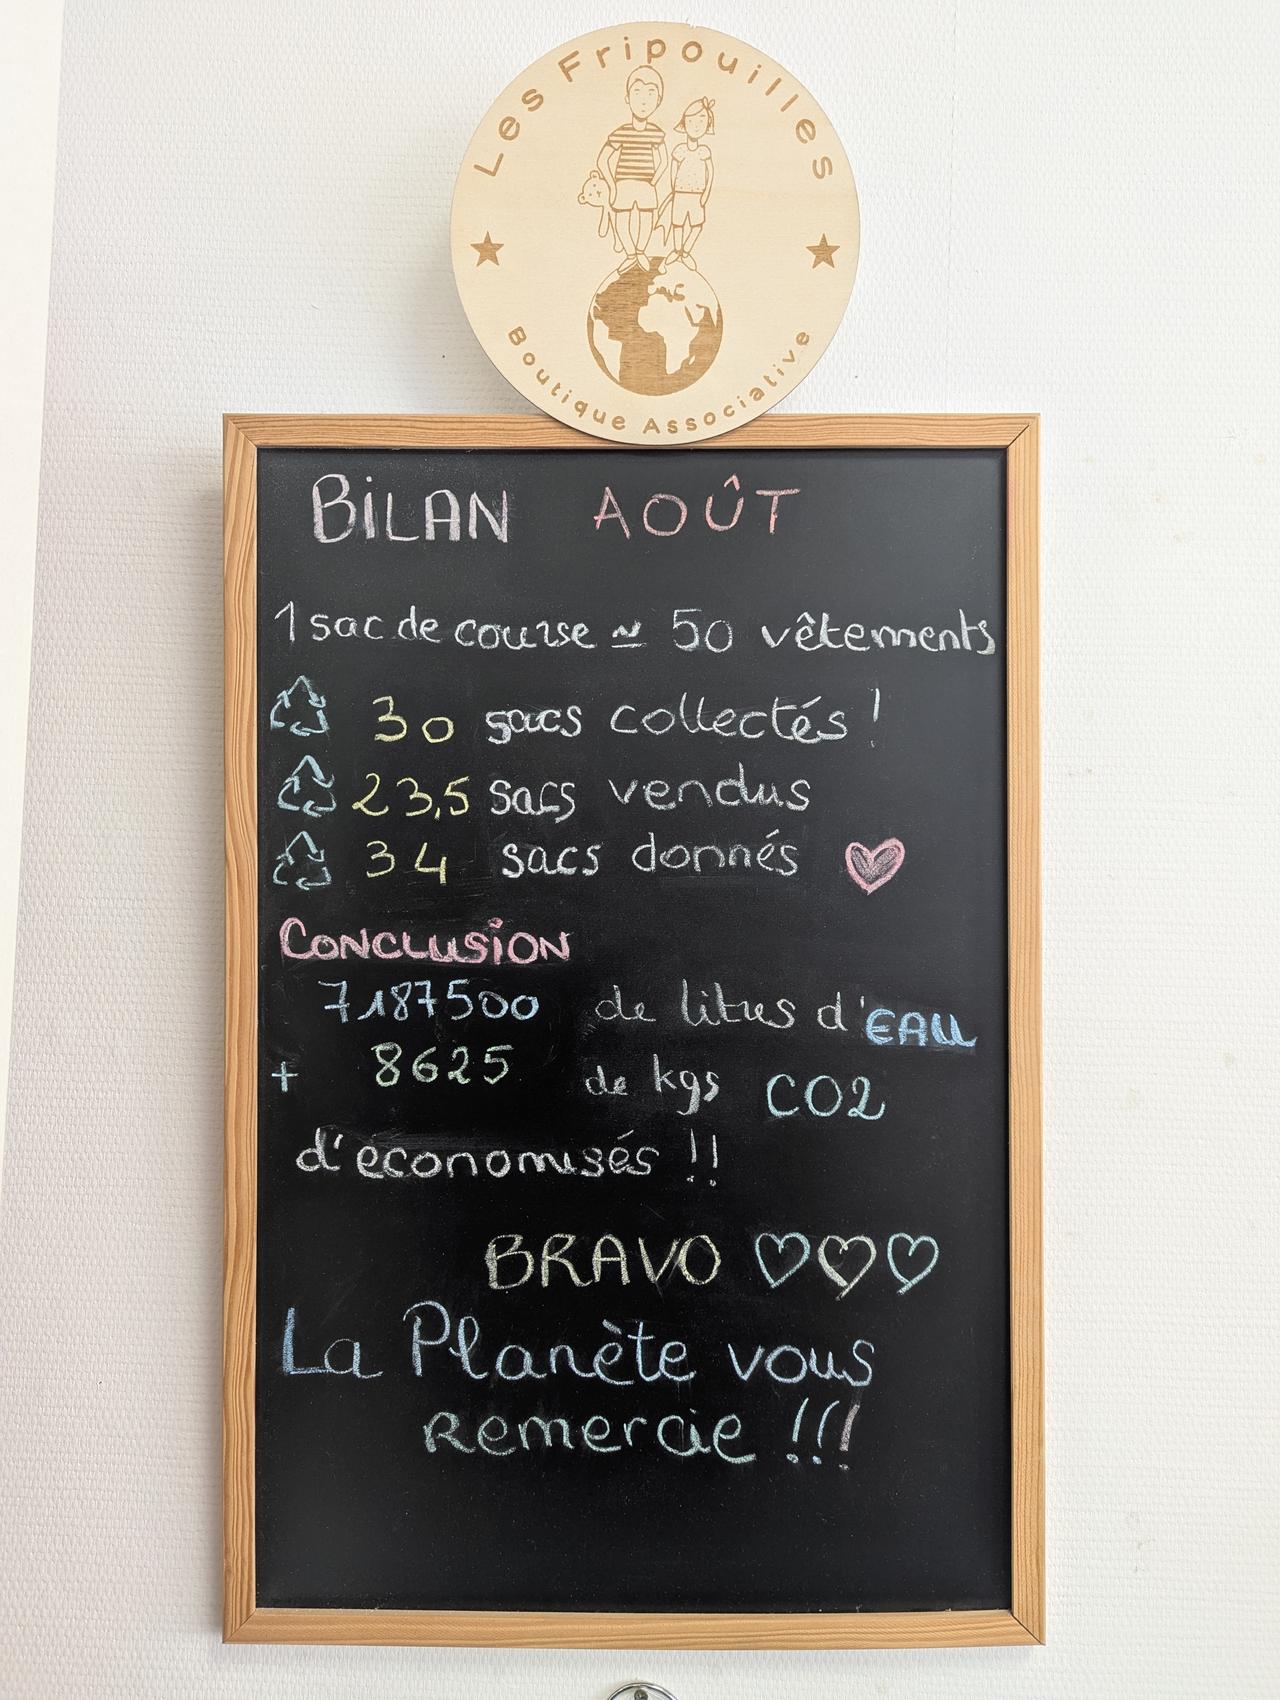 Les Fripouilles
Boutique Associative
BiLAN AOÛT
1 sac de course ≃ 50 vêtements
30 sacs collectés !
23,5 sacs vendus
34 sacs donnés
CONCLUSION
7187500 de litres d'EAU
+ 8625 de kgs CO2
d'économisés !!
BRAVO ♡♡♡
La Planète vous
Remercie !!!